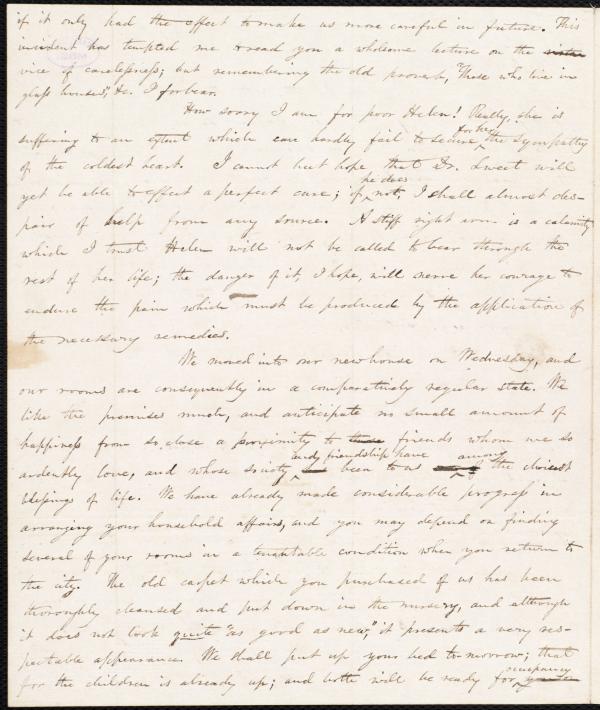 if it only had the effect to make us more careful in future. This
incident has tempted me to read you a wholesome lecture on the
vice of carelessness; but remembering the old proverb, "Those who live in
glass houses", &c. I forbear.
How sorry I am for poor Helen! Really, she is
suffering to an extent which can hardly fail to secure for her the sympathy
of the coldest heart. I cannot but hope that Dr. Sweet will
yet be able to effect a perfect cure; if he does not, I shall almost des-
pair of help from any source. A stiff right arm is a calamity
which I trust Helen will not be called to bear through the
rest of her life; the danger of it, I hope, will nerve her courage to
endure the pain which must be produced by the application of
the necessary remedies.
We moved into our new house on Wednesday, and
our rooms are consequently in a comparatively regular state. We
like the premises much, and anticipate no small amount of
happiness from so close a proximity to friends whom we so
ardently love, and whose society and friendship have been to us among the choicest
blessings of life. We have already made considerable progress in
arranging your household affairs, and you may depend on finding
several of your rooms in a tenantable condition when you return to
the city. The old carpet which you purchased of us has been
thoroughly cleansed and put down in the nursery, and although
it does not look quite "as good as new," it presents a very res-
pectable appearance. We shall put up your bed to-morrow; that
for the children is already up; and both will be ready for occupancy